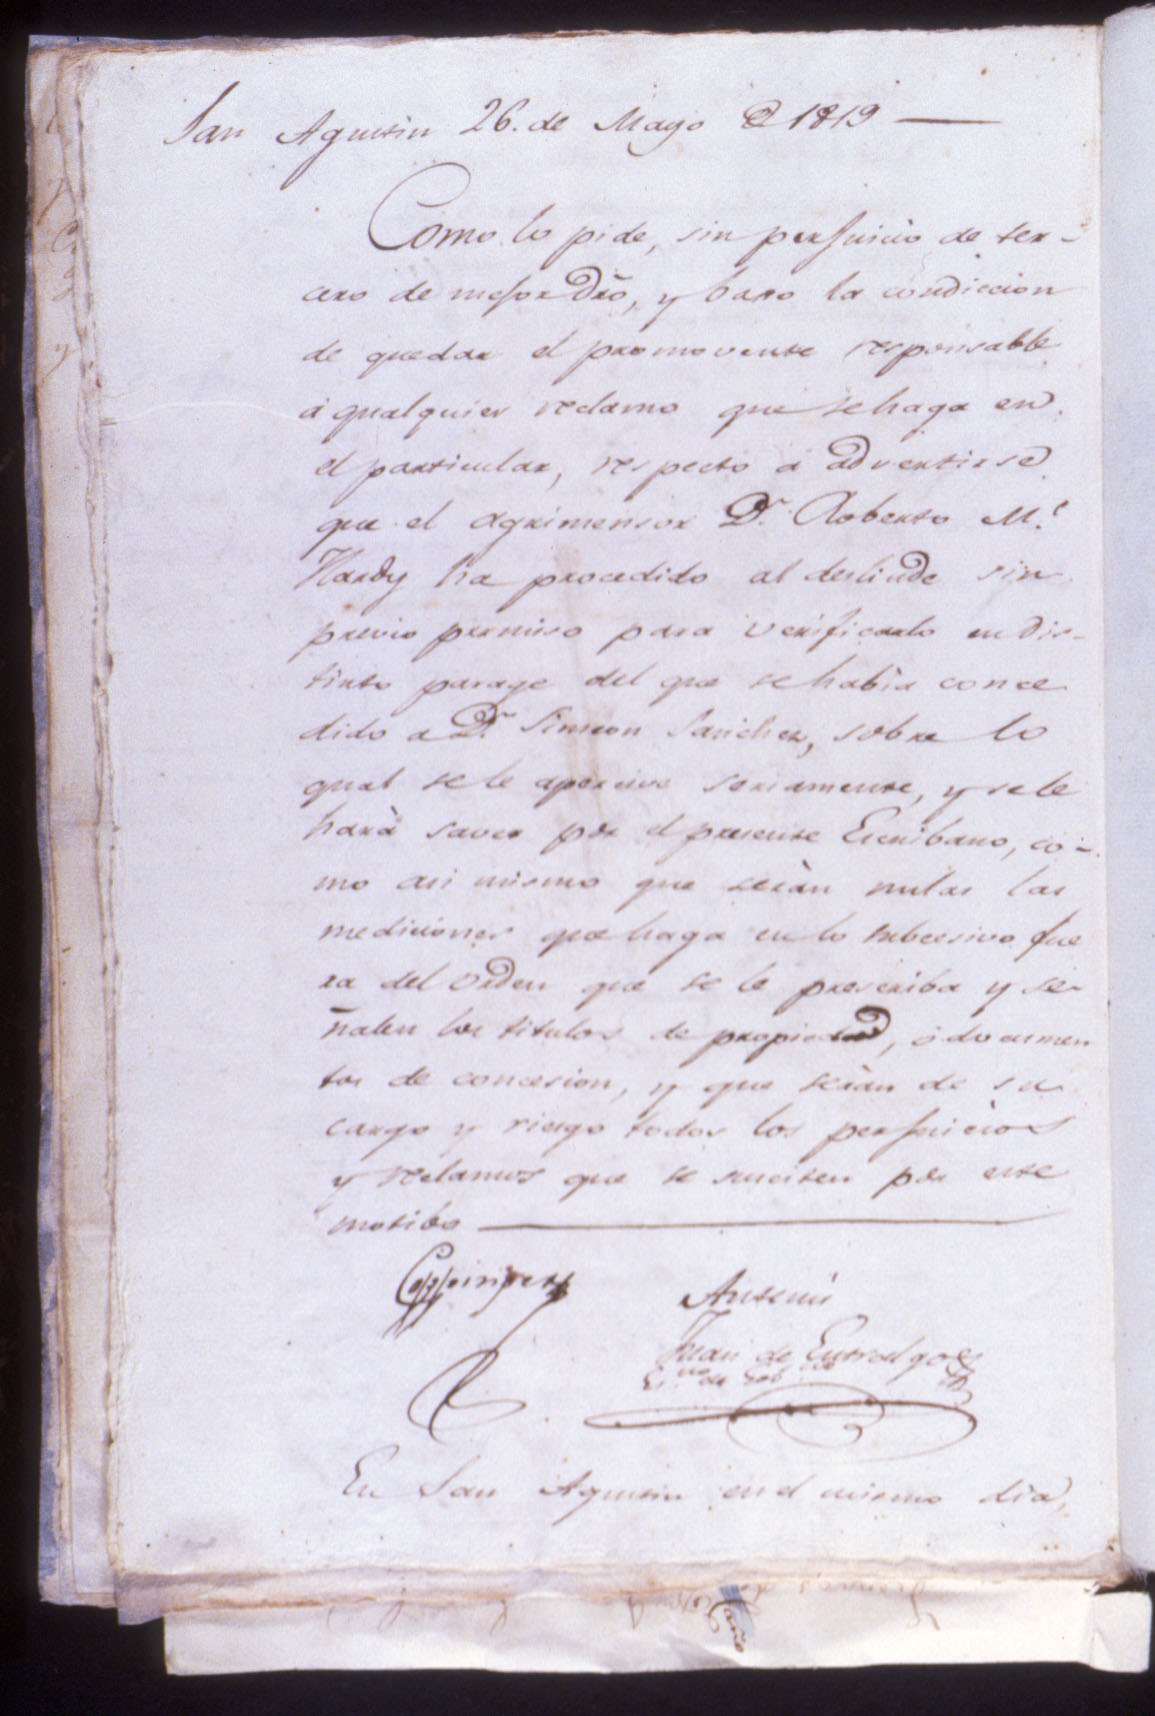 San Agustin 26. de Mayo de 1819
Como lo pide, sin perjuicio de ter-
cero de mejor Dro, y bajo la condiccion
de quedar el promovente responsable
á qualquier reclamo que se haga en
el particular, respecto á advertirse
que el Agrimensor Dn. Roberto Mc.
Hardy ha procedido al deslinde sin
previo permiso para verificarlo en dis-
tinto parage del que se habia conce
dido a Dn. Simeon Sanchez, sobre lo
qual se le apercive seriamente, y se le
hará saver por el presente Escribano, co-
mo asi mismo que serán nulas las
mediciones que haga en lo subcesivo fue
ra del orden que se le prescriba y se-
ñalen los titulos de propiedad, ó documen
tos de concesion, y que serán de su
cargo y riesgo todos los perjuicios
y reclamos que se susciten por este
motibo
Coppinger
Ante mi
Juan de Entralgo
Esno. de Gob.
En San Agustin en el mismo dia,